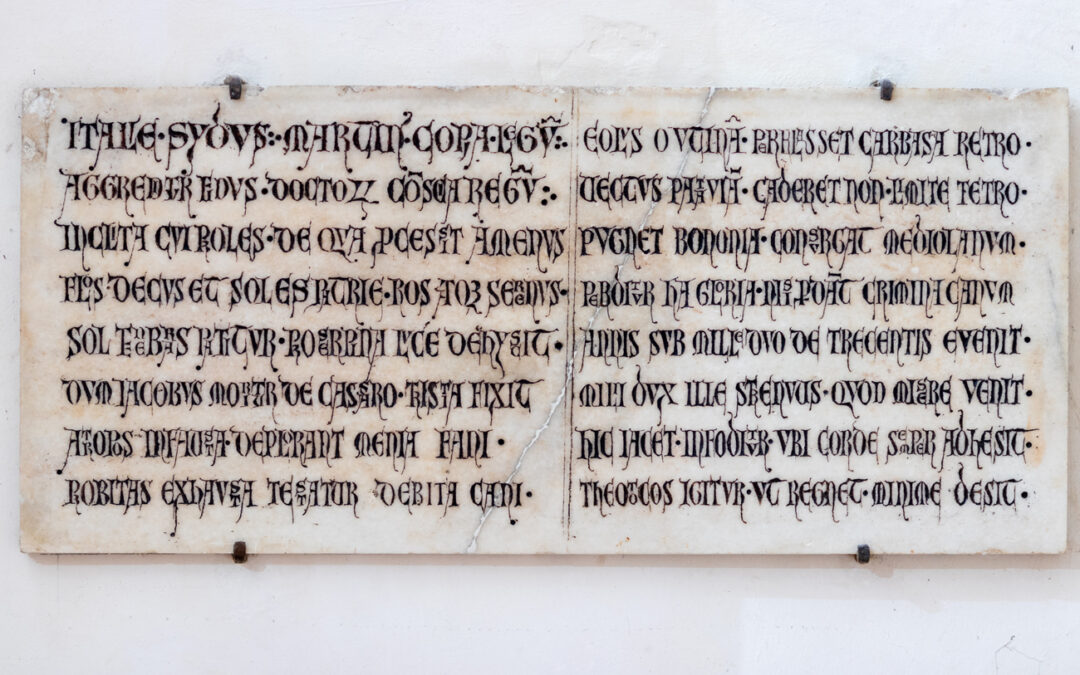 ITALIE · SYDVS : MARTIN' · COPIA · LEGV̄ :
AGGREDITR FIDVS · DOCTOZZ CŌSCIA REGV̄ :
INCLITA CVI PROLES · DE QVA PCESSIT AMENVS
FLOS DECVS ET SOLES PATRIE · ROS ATQZ SERENVS ·
SOL TENEBRAS PATITVR · LVCE DEHYSCIT ·
DVM IACOBVS MORITR DE CASSARO · TRISTIA FIXIT
ATROPOS INFAVSTA · DEPLORANT MENIA FANI ·
PROBITAS EXHAVSTA TESTATVR DEBITA CANI ·
EOLVS O VTINĀ · PROHIBVISSET CARBASA RETRO ·
VECTVS PATAVIĀ · CADERET NON · LIMITE TETRO ·
PVGNET BONONIA · CONSVRGAT MEDIOLANVM ·
PERDITVR HA GLORIA · NISI PDĀT CRIMINA CANVM
ANNIS SVB MILLE DVO DE TRECENTIS EVENIT ·
MILI DVX ILLE STRENVVS · QVOD MISERE VENIT ·
HIC IACET · INFODITVR · VBI CORDE SEMPER ADHESIT ·
THEOTOCOS IGITVR · VT REGNET · MINIME DESIT ·